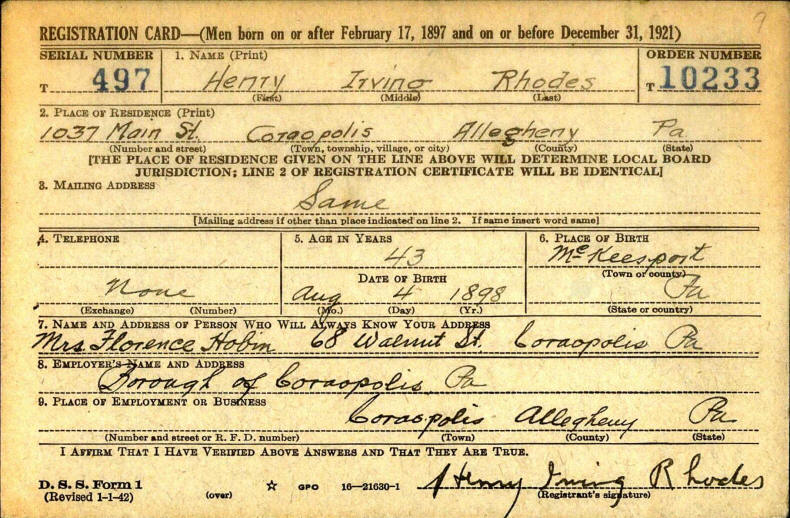 9
REGISTRATION CARD—(Men born on or after February 17, 1897 and on or before December 31, 1921)
SERIAL NUMBER 1. NAME (Print) ORDER NUMBER
T 497 Henry Irving Rhodes T 10233
(First) (Middle) (Last)
2. PLACE OF RESIDENCE (Print)
1037 Main St. Coraopolis Allegheny Pa
(Number and street) (Town, township, village, or city) (County) (State)
[THE PLACE OF RESIDENCE GIVEN ON THE LINE ABOVE WILL DETERMINE LOCAL BOARD
JURISDICTION; LINE 2 OF REGISTRATION CERTIFICATE WILL BE IDENTICAL]
3. MAILING ADDRESS
Same
[Mailing address if other than place indicated on line 2. If same insert word same]
4. TELEPHONE 5. AGE IN YEARS 6. PLACE OF BIRTH
43 McKeesport
(Town or county)
DATE OF BIRTH
None Aug 4 1898 Pa
(Exchange) (Number) (Mo.) (Day) (Yr.) (State or country)
7. NAME AND ADDRESS OF PERSON WHO WILL ALWAYS KNOW YOUR ADDRESS
Mrs. Florence Hobin 68 Walnut St. Coraopolis Pa
8. EMPLOYER'S NAME AND ADDRESS
Borough of Coraopolis, Pa
9. PLACE OF EMPLOYMENT OR BUSINESS
Coraopolis Allegheny Pa
(Number and street or R. F. D. number) (Town) (County) (State)
I AFFIRM THAT I HAVE VERIFIED ABOVE ANSWERS AND THAT THEY ARE TRUE.
D. S. S. Form 1
(Revised 1-1-42) (over) ☆ GPO 16—21630-1 Henry Irving Rhodes
(Registrant's signature)